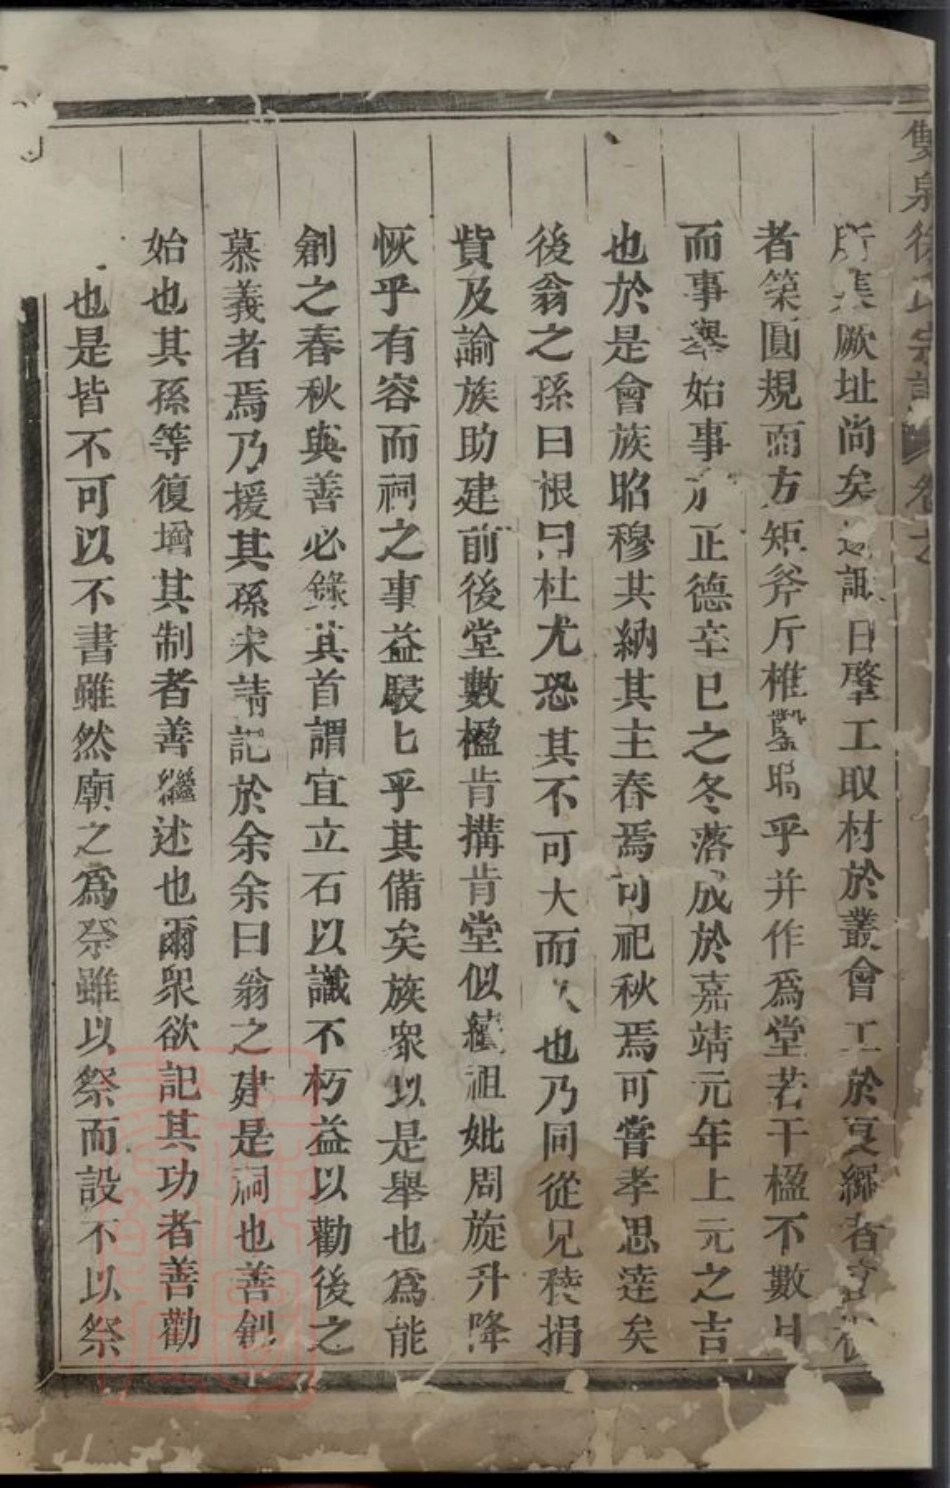 雙泉徐氏宗譜 卷之
所集厥址尚矣 諏日肇工取材於叢會工於 者
者築圓規而方矩斧斤椎鑿塢乎并作爲堂若干楹不數月
而事舉始事於正德辛巳之冬落成於嘉靖元年上元之吉
也於是會族昭穆共納其主春焉可祀秋焉可嘗孝思達矣
後翁之孫曰根曰杜尤恐其不可大而久也乃同從兄稜捐
貲及論族助建前後堂數楹肯搆肯堂似續祖妣周旋升降
恢乎有容而祠之事益駸匕乎其備矣族衆以是舉也爲能
創之春秋與善必錄其首謂宜立石以識不朽益以勸後之
慕義者焉乃援其孫來請記於余余曰翁之建是祠也善創
始也其孫等復增其制者善繼述也爾衆欲記其功者善勸
也是皆不可以不書雖然廟之爲祭雖以祭而設不以祭